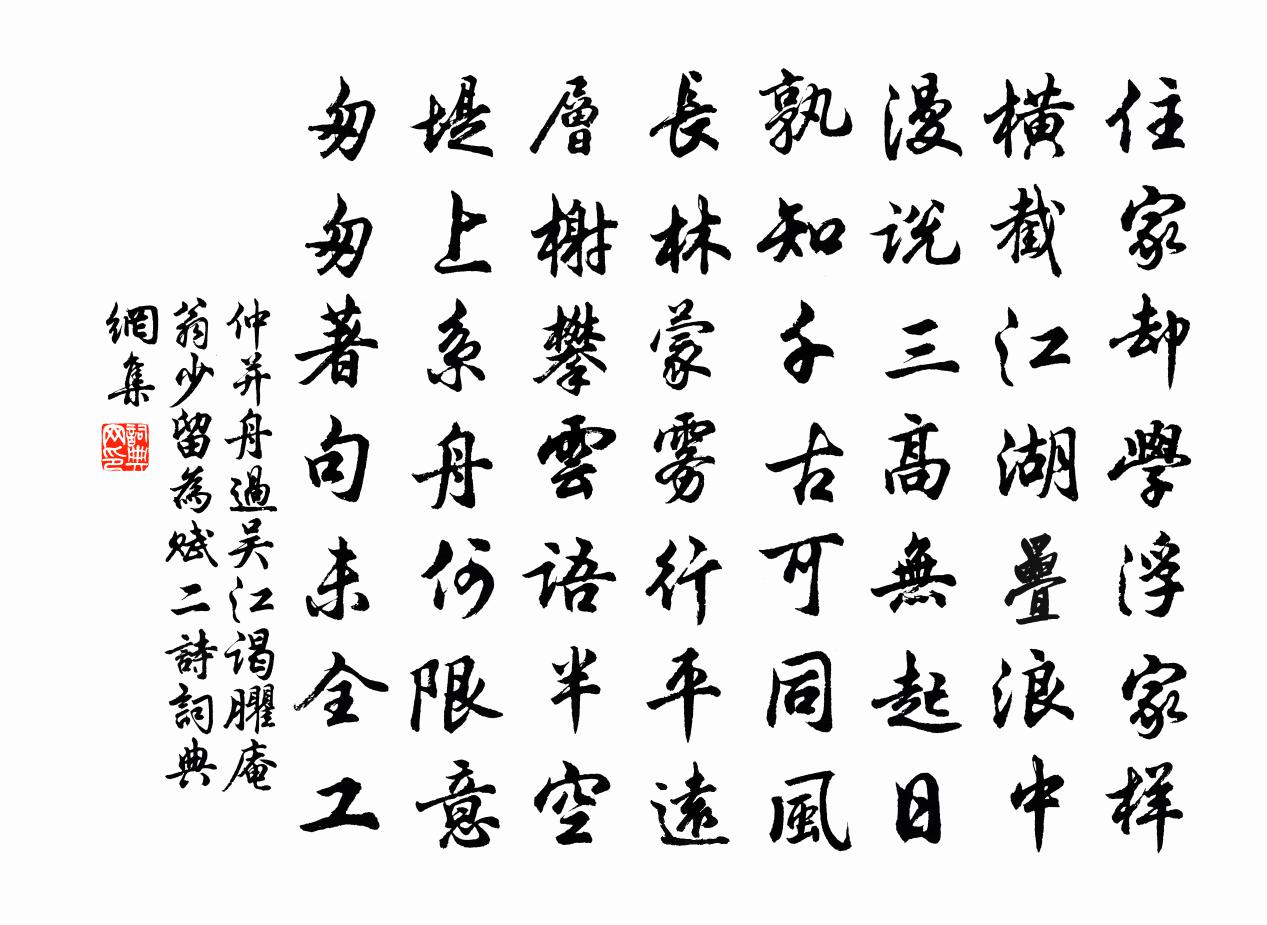 住家却學浮家样
橫截江湖疊浪中
漫说三高無起日
孰知千古可同風
長林蒙雾行平遠
層榭攀雲语半空
堤上系舟何限意
匆匆著句未全工
仲并舟過吴江谒臞庵
翁少留為赋二詩詞典
網集
詞典网印